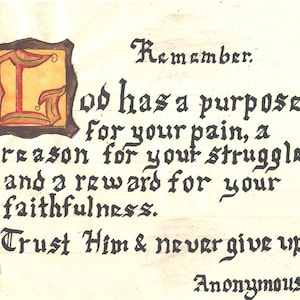 Remember.
God has a purpose
for your pain, a
reason for your struggle
and a reward for your
faithfulness.
Trust Him & never give up
Anonymous